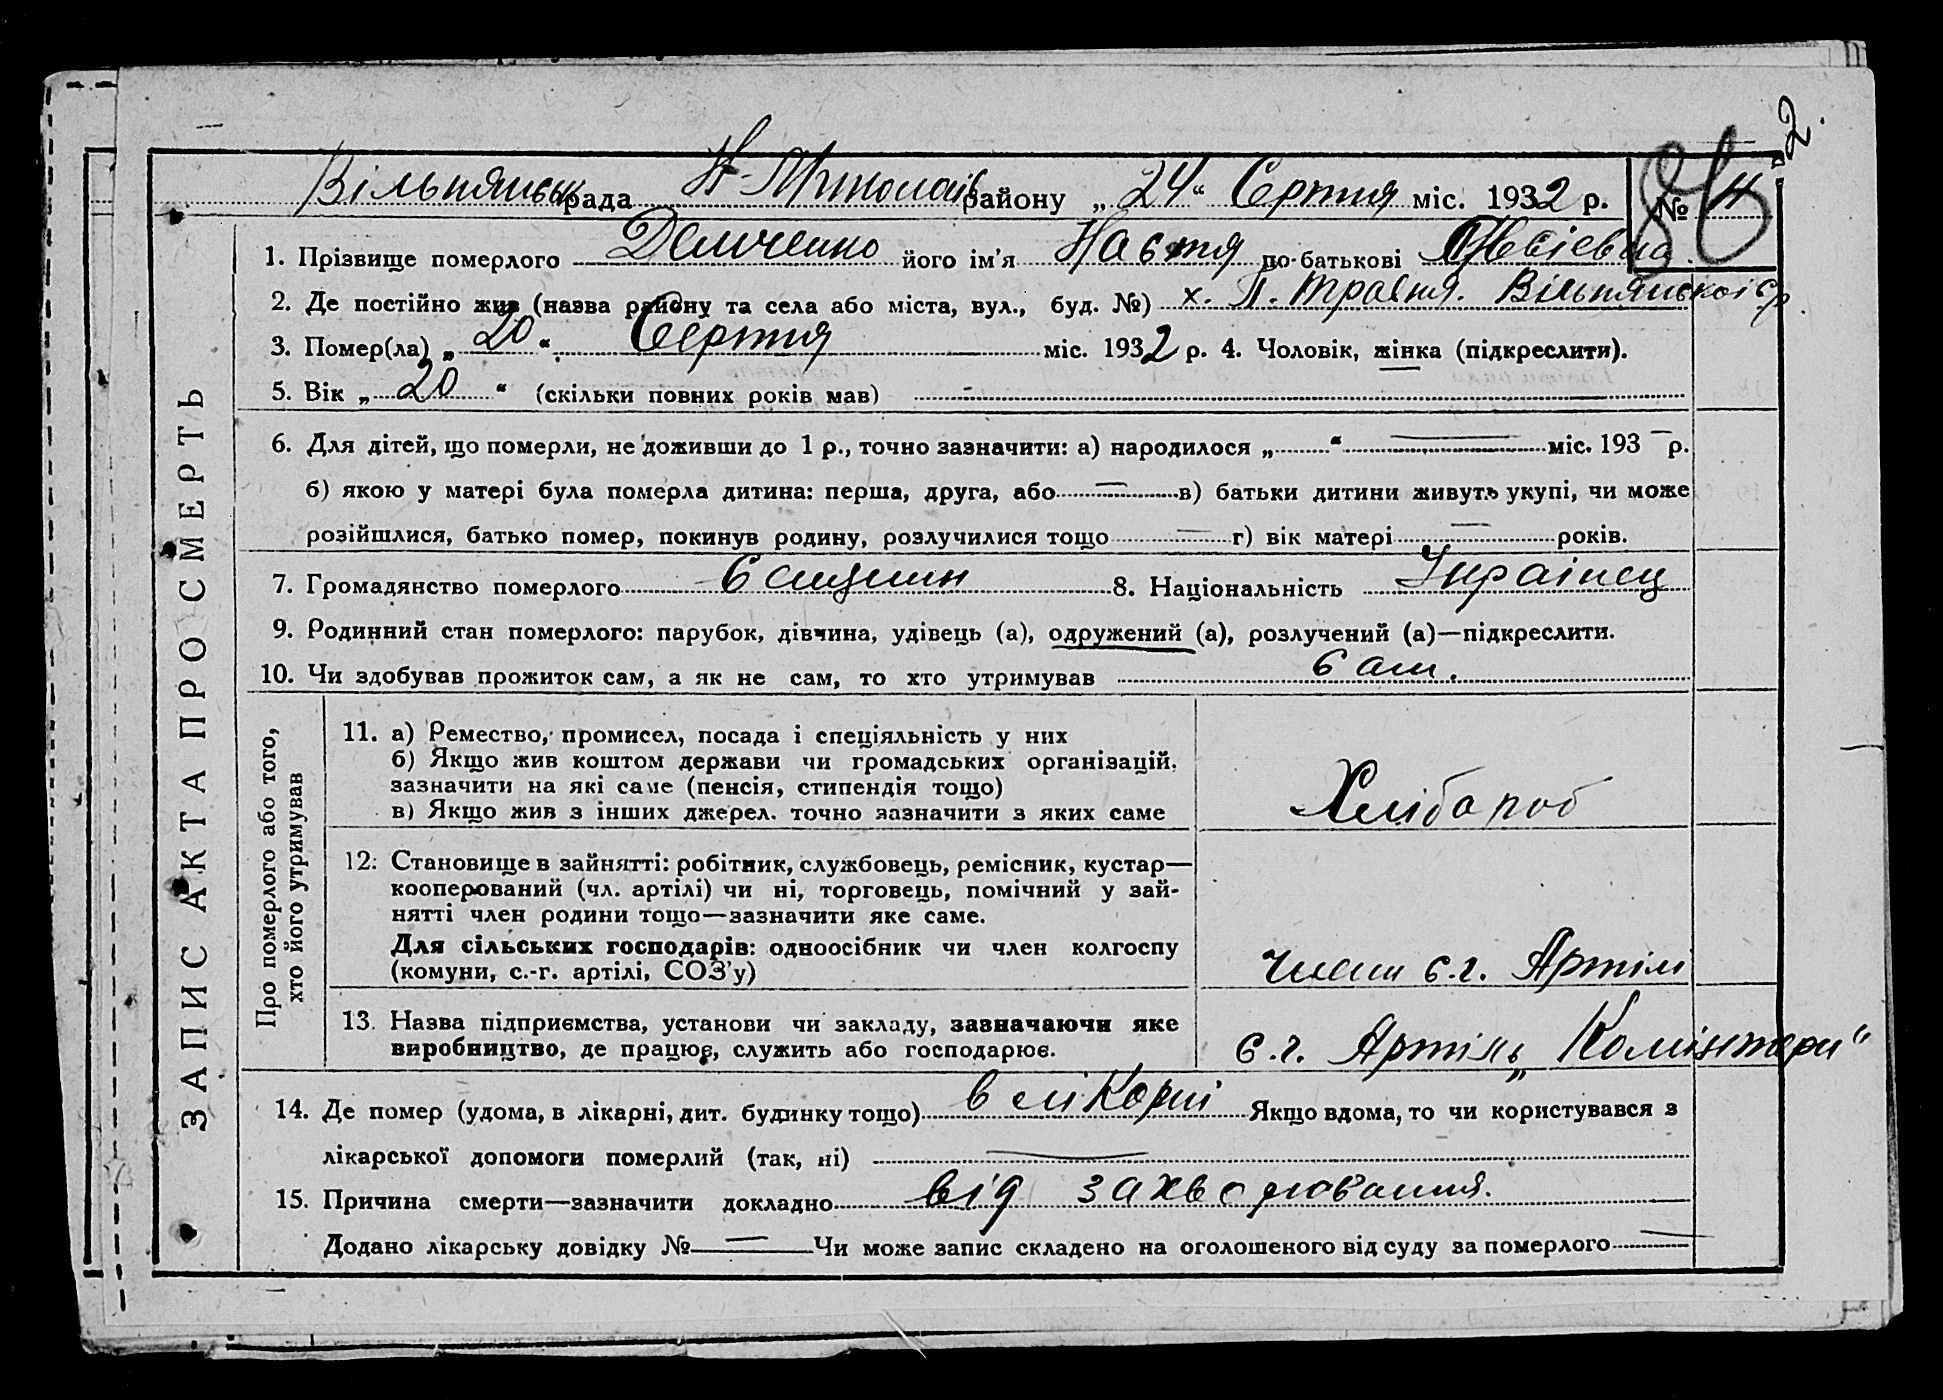 2.
86
Вільнянська рада Н-Миколаїв району „24“ Серпня міс. 1932 р. № 4
1. Прізвище померлого Демченко його ім'я Настя по-батькові
2. Де постійно жив (назва району та села або міста, вул., буд. №) х. П. Травня. Вільнянської с/р.
3. Помер(ла) „20“ Серпня міс. 1932 р. 4. Чоловік, жінка (підкреслити).
5. Вік „20“ (скільки повних років мав) -
6. Для дітей, що померли, не доживши до 1 р., точно зазначити: а) народилося „ “ — міс. 193 — р.
б) якою у матері була померла дитина: перша, друга, або — в) батьки дитини живуть укупі, чи може
розійшлися, батько помер, покинув родину, розлучилися тощо — г) вік матері — років.
7. Громадянство померлого 8. Національність Українец
9. Родинний стан померлого: парубок, дівчина, удівець (а), одружений (а), розлучений (а)—підкреслити.
10. Чи здобував прожиток сам, а як не сам, то хто утримував сам.
ЗАПИС АКТА ПРО СМЕРТЬ
Про померлого або того,
хто його утримував
11. а) Ремество, промисел, посада і спеціяльність у них
б) Якщо жив коштом держави чи громадських організацій,
зазначити на які саме (пенсія, стипендія тощо)
в) Якщо жив з інших джерел. точно зазначити з яких саме
Хлібороб
12. Становище в зайнятті: робітник, службовець, ремісник, кустар—
кооперований (чл. артілі) чи ні, торговець, помічний у зай-
нятті член родини тощо—зазначити яке саме.
Для сільських господарів: одноосібник чи член колгоспу
(комуни, с.-г. артілі, СОЗ'у)
Член с.г. Артілі
13. Назва підприємства, установи чи закладу, зазначаючи яке
виробництво, де працює, служить або господарює.
с.г. Артіль „Комінтерн“
14. Де помер (удома, в лікарні, дит. будинку тощо) в лікарні Якщо вдома, то чи користувався з
лікарської допомоги померлий (так, ні) —
15. Причина смерти—зазначити докладно від захворювання.
Додано лікарську довідку № — Чи може запис складено на оголошеного від суду за померлого —